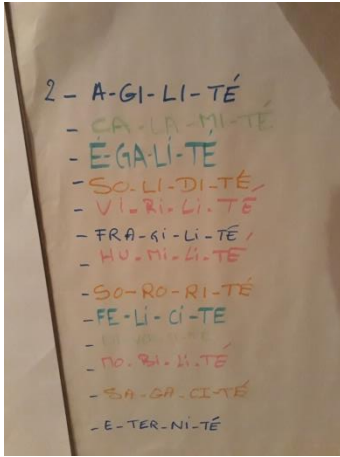 2 - A-GI-LI-TÉ
- CA-LA-MI-TÉ
- É-GA-LI-TÉ
- SO-LI-DI-TÉ
- VI-RI-LI-TÉ
- FRA-GI-LI-TÉ
- HU-MI-LI-TÉ
- SO-RO-RI-TÉ
- FE-LI-CI-TE
-
- MO-BI-LI-TÉ
- SA-GA-CI-TÉ
- E-TER-NI-TÉ